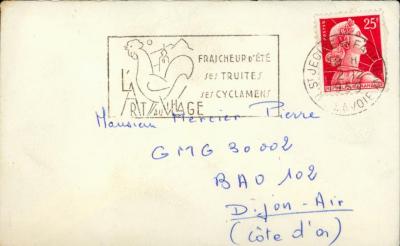 FRAICHEUR D'ÉTÉ
ses TRUITES
ses CYCLAMENS
L'ART AU VILLAGE
25F
POSTES
ST JEOIRE
SAVOIE
Monsieur Mercier Pierre
GMG 30002
BAO 102
Dijon-Air
(Côte d'or)